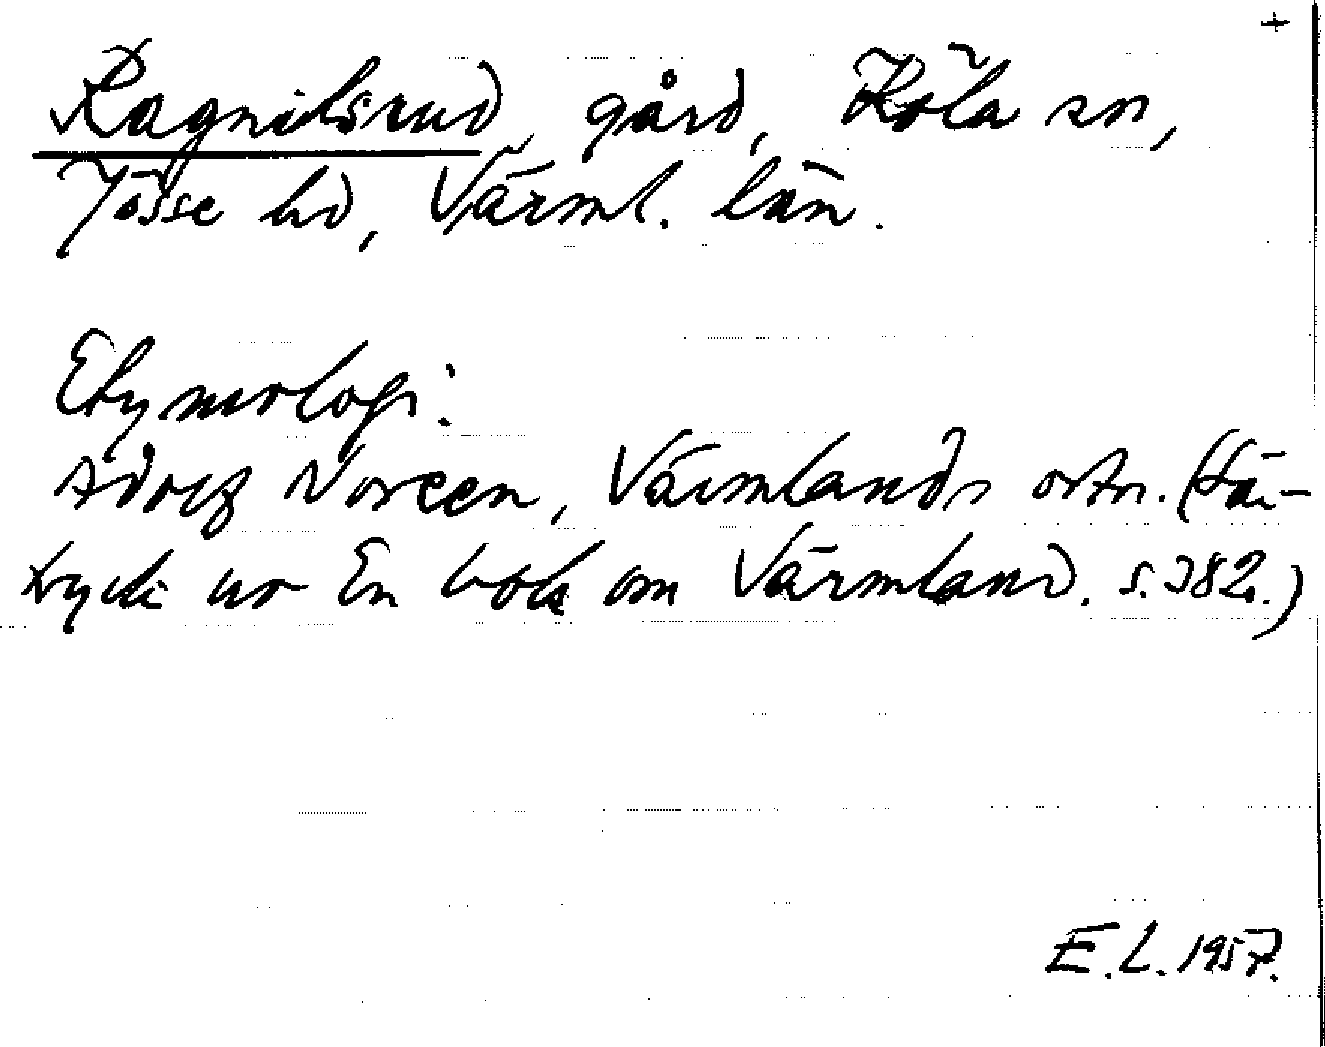 +
Ragnilsrud, gård, Köla sn,
Jösse hd, Värml. län.
Etymologi:
Adolf Noreen, Värmlands ortn. (Sär-
tryck ur En bok om Värmland. s. 382.)
E.L. 1957.